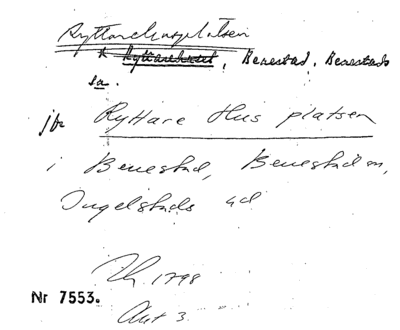 Ryttarehusplatsen
* Ryttarehuset, Benestad, Benestads
sn.
jfr Ryttare Hus platsen
i Benestad, Benestad sn,
Ingelstads hd
1798
Nr 7553.
Akt 3.